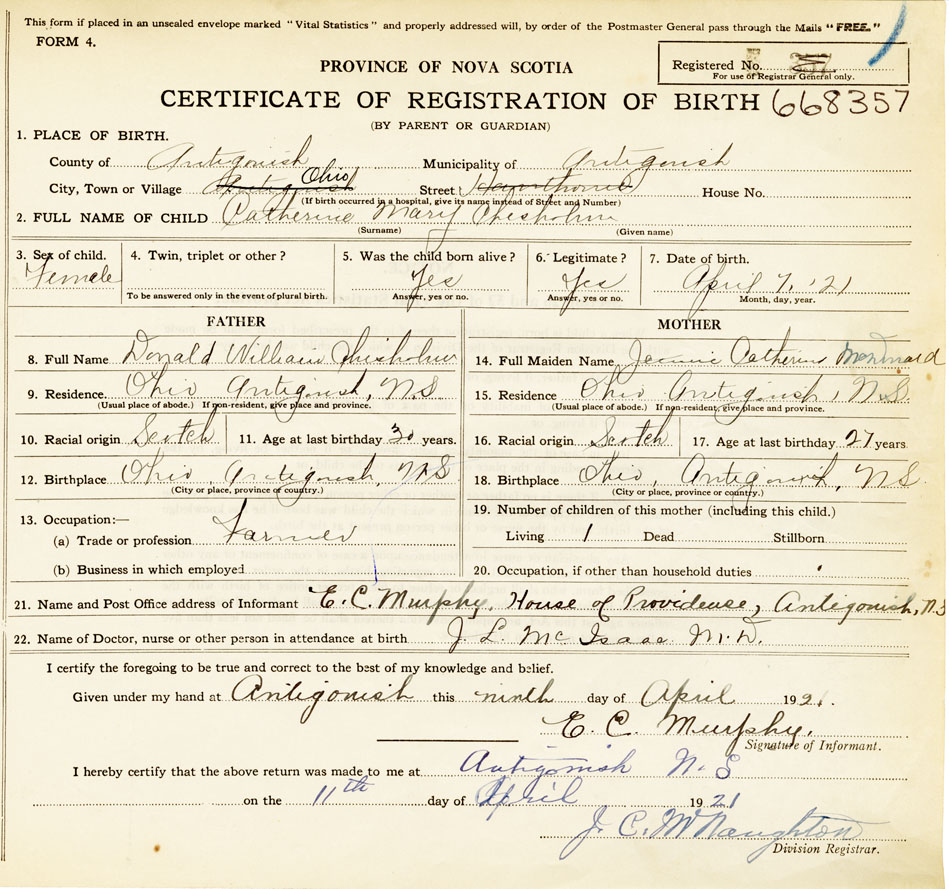 This form if placed in an unsealed envelope marked "Vital Statistics" and properly addressed will, by order of the Postmaster General pass through the Mails "FREE."
FORM 4.
Registered No.
For use of Registrar General only.
PROVINCE OF NOVA SCOTIA
CERTIFICATE OF REGISTRATION OF BIRTH 668357
(BY PARENT OR GUARDIAN)
1. PLACE OF BIRTH.
County of Antigonish Municipality of Antigonish
City, Town or Village Antigonish Ohio Street Hawthorne House No.
(If birth occurred in a hospital, give its name instead of Street and Number)
2. FULL NAME OF CHILD Catherine Mary Chisholm
(Surname) (Given name)
3. Sex of child. 4. Twin, triplet or other? 5. Was the child born alive? 6. Legitimate? 7. Date of birth.
Female Yes Yes April 7, '21
To be answered only in the event of plural birth. Answer, yes or no. Answer, yes or no. Month, day, year.
FATHER MOTHER
8. Full Name Donald William Chisholm 14. Full Maiden Name Jennie Catherine
9. Residence Ohio Antigonish, N.S. 15. Residence Ohio Antigonish, N.S.
(Usual place of abode.) If non-resident, give place and province. (Usual place of abode.) If non-resident, give place and province.
10. Racial origin Scotch 11. Age at last birthday 30 years. 16. Racial origin Scotch 17. Age at last birthday 27 years
12. Birthplace Ohio, Antigonish, N.S 18. Birthplace Ohio, Antigonish, N S
(City or place, province or country.) (City or place, province or country.)
13. Occupation:— 19. Number of children of this mother (including this child.)
(a) Trade or profession Farmer Living 1 Dead Stillborn
(b) Business in which employed 20. Occupation, if other than household duties
21. Name and Post Office address of Informant E. C. Murphy, House of Providense, Antigonish, N.S
22. Name of Doctor, nurse or other person in attendance at birth J. L. Mc Isaac M.D.
I certify the foregoing to be true and correct to the best of my knowledge and belief.
Given under my hand at Antigonish this ninth day of April 1921.
E. C. Murphy.
Signature of Informant.
I hereby certify that the above return was made to me at Antigonish N. S
on the 11th day of April 1921
J. C. McNaughton
Division Registrar.